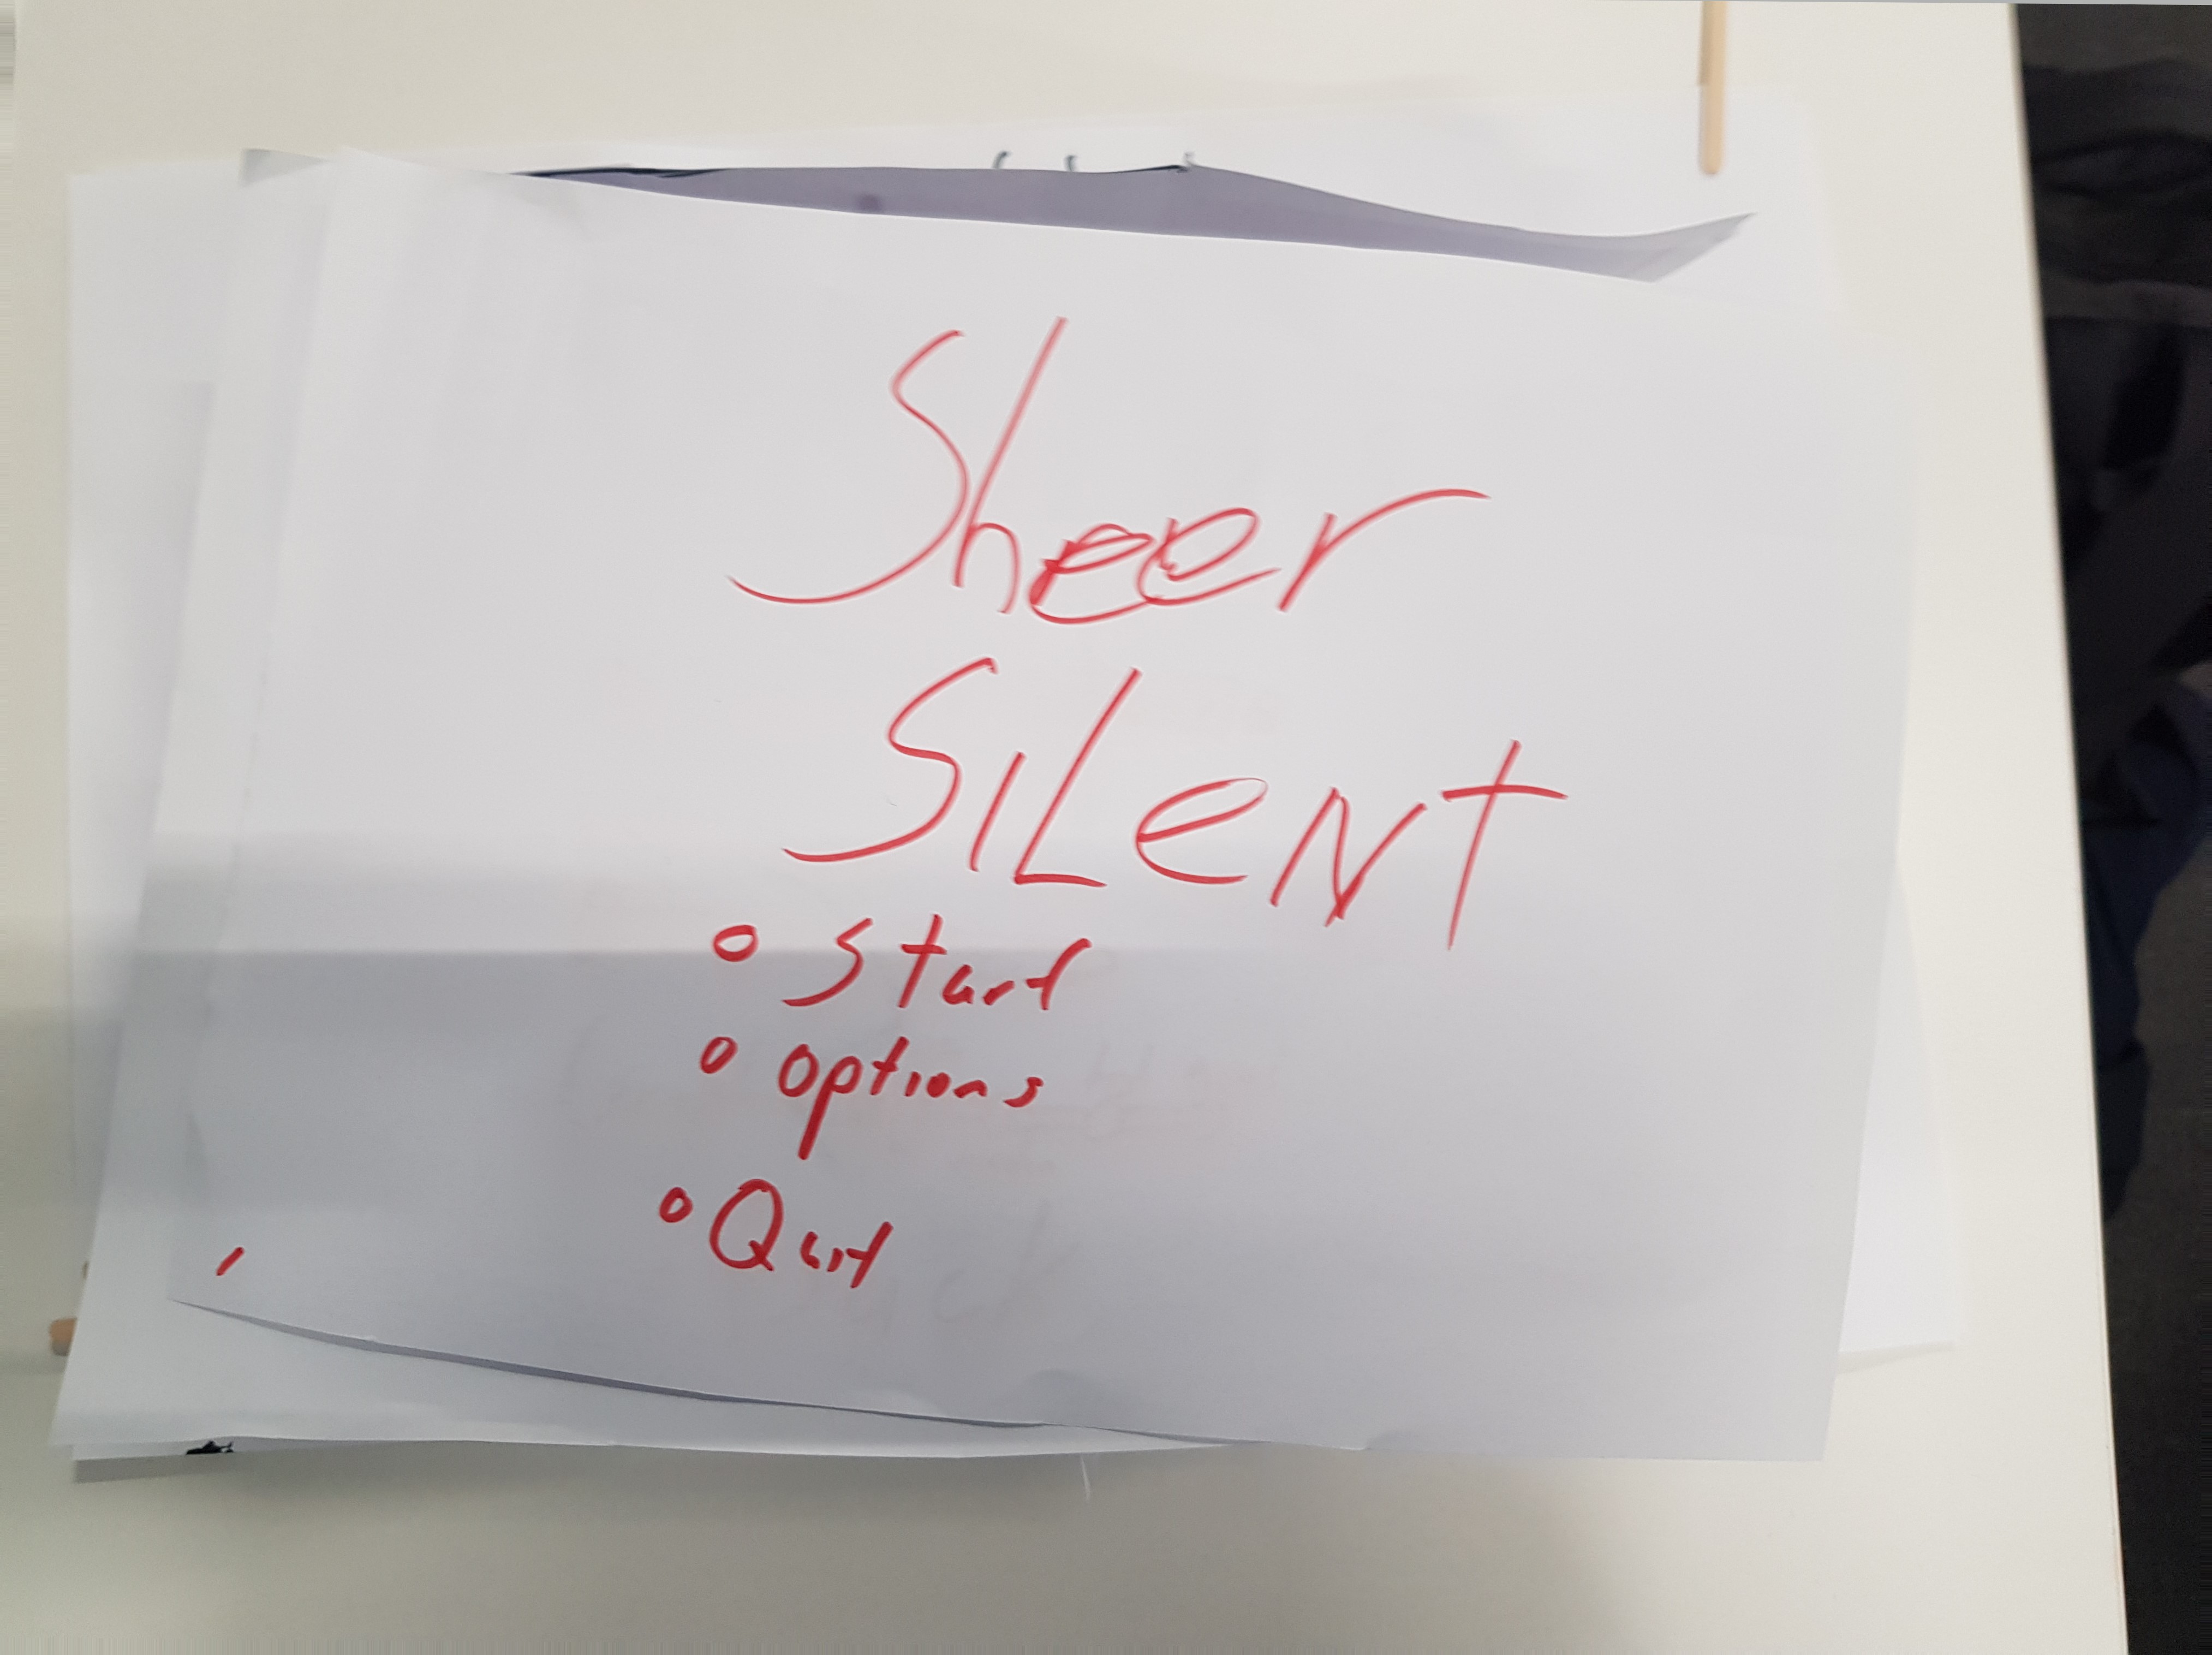 Sheer
SILeNt
o Start
o options
o Quit